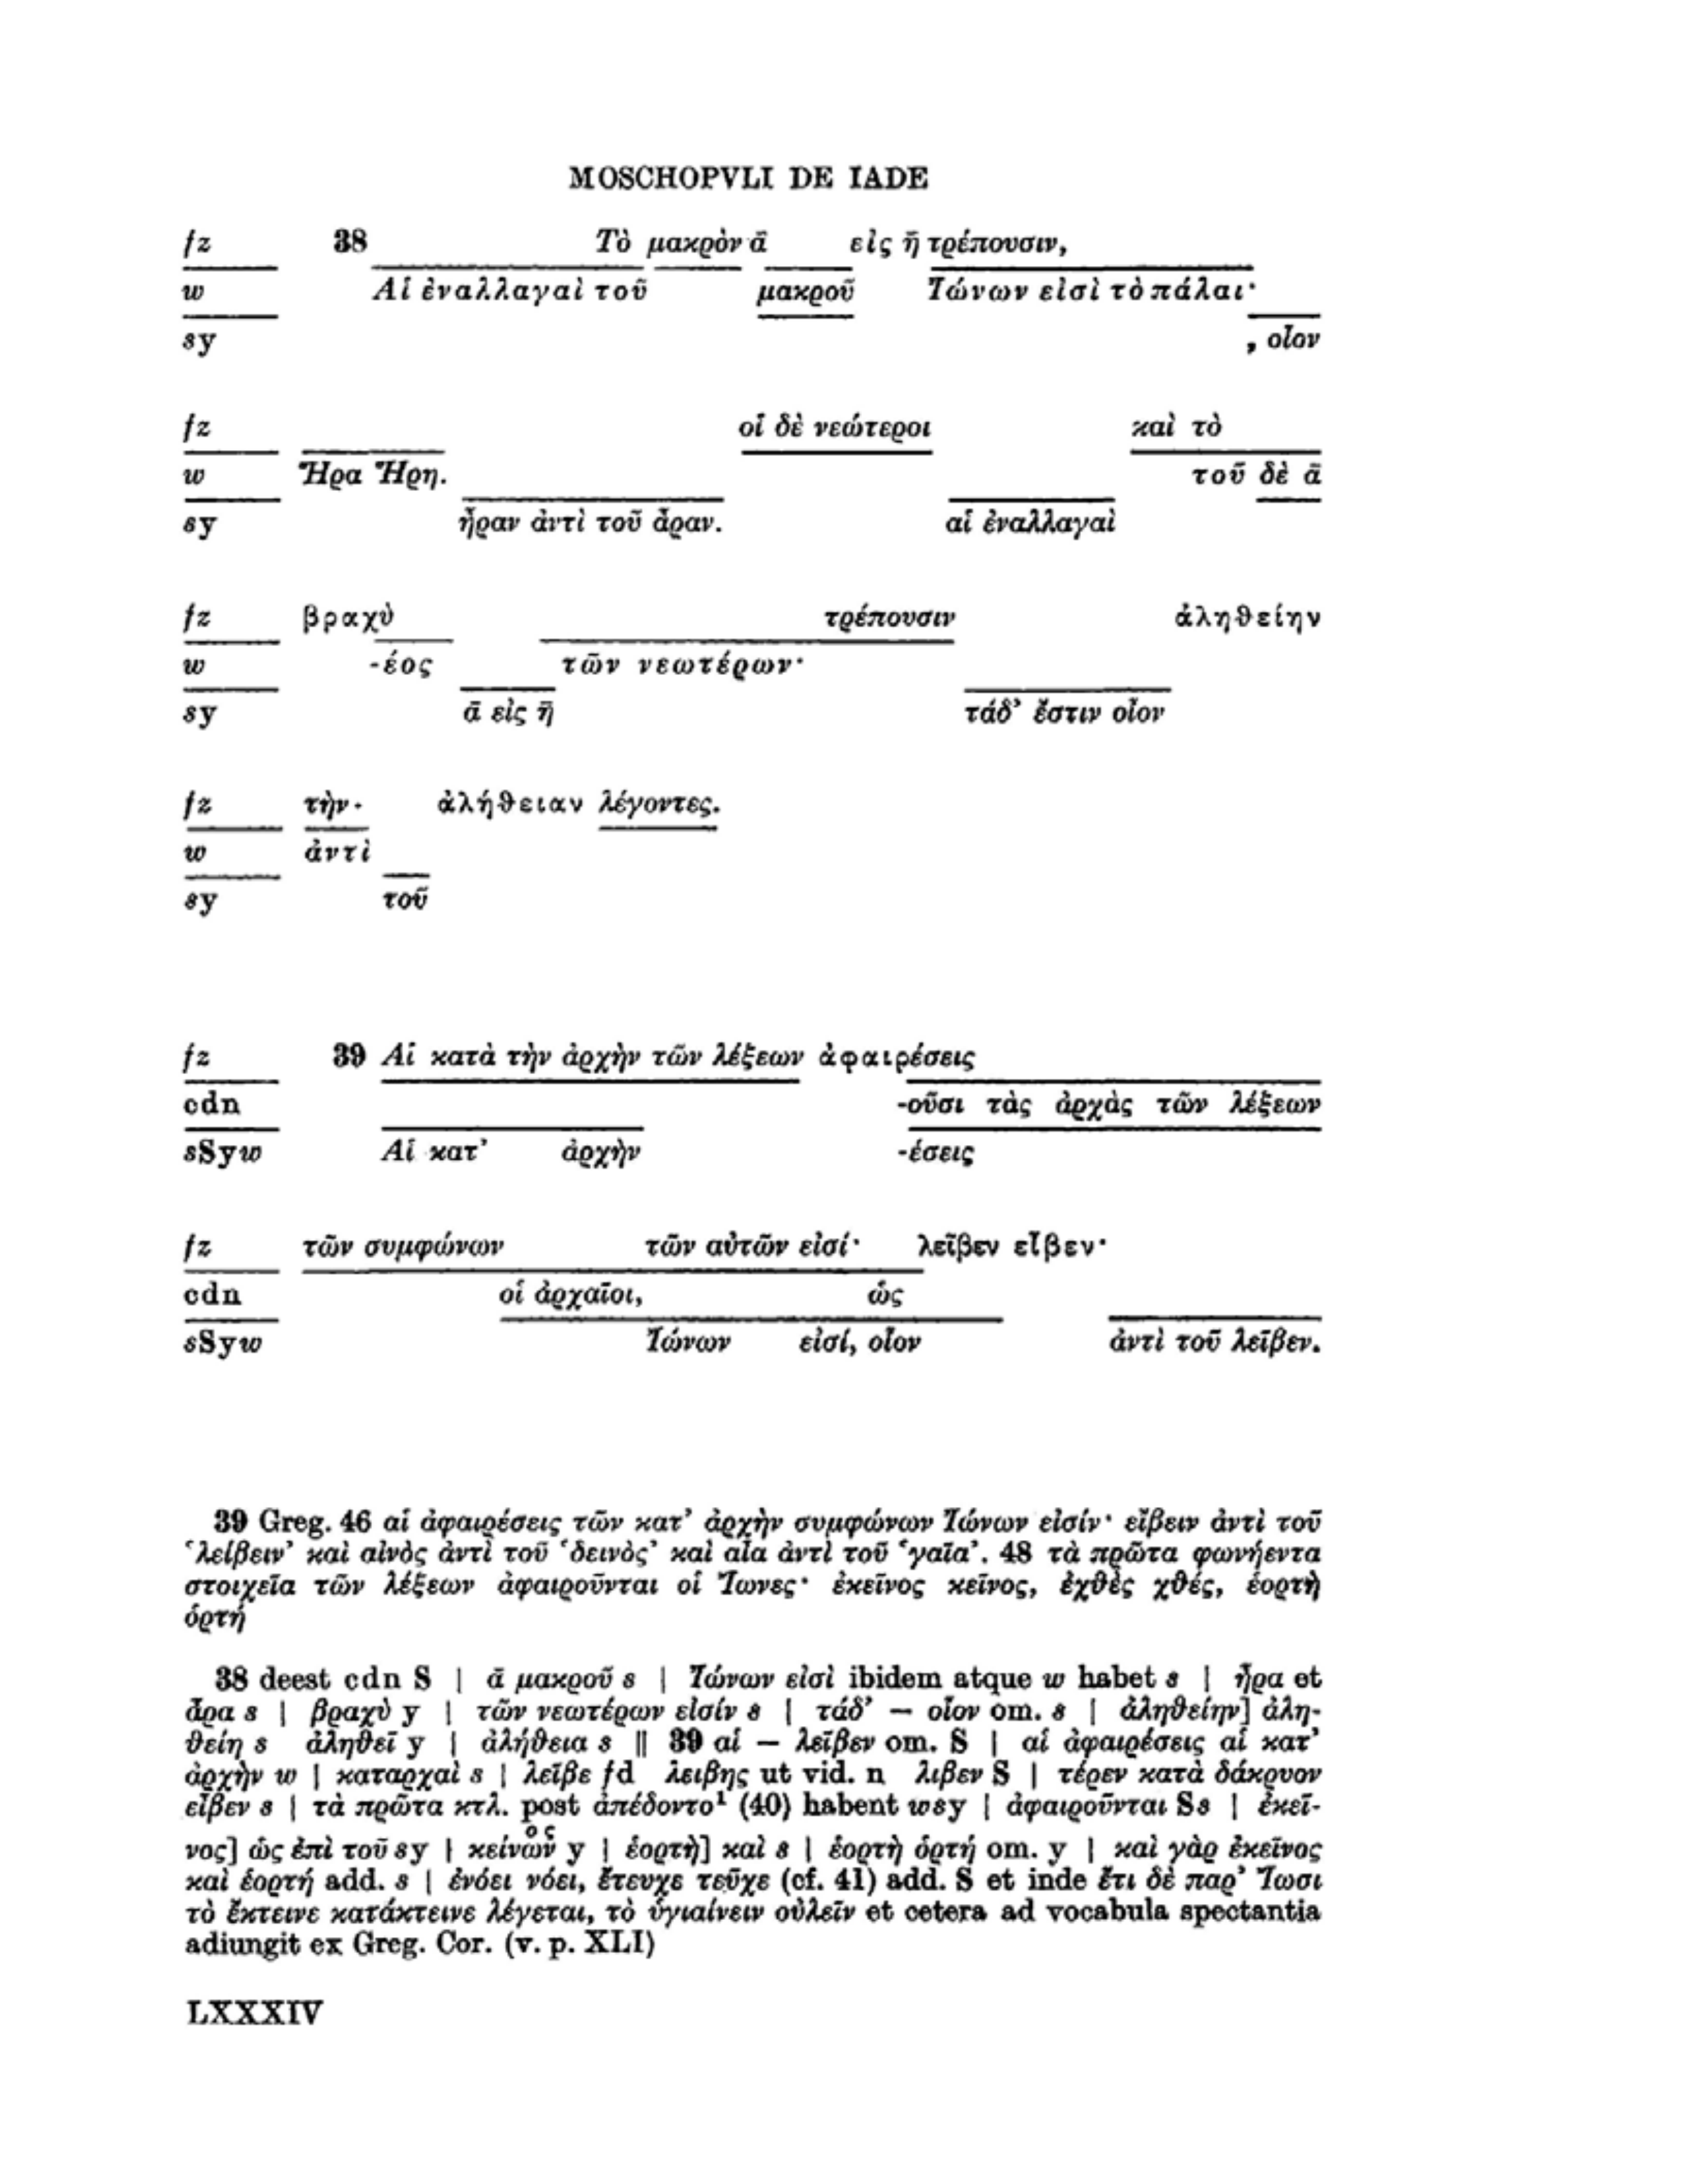 MOSCHOPVLI DE IADE
fz 38 Τὸ μακρὸν ᾱ εἰς η̄ τρέπουσιν,
w Αἱ ἐναλλαγαὶ τοῦ μακροῦ Ἰώνων εἰσὶ τὸ πάλαι·
sy , οἷον
fz οἱ δὲ νεώτεροι καὶ τὸ
w Ἥρα Ἥρη. τοῦ δὲ ᾱ
sy ἦραν ἀντὶ τοῦ ἆραν. αἱ ἐναλλαγαὶ
fz βραχὺ τρέπουσιν ἀληθείην
w -έος τῶν νεωτέρων·
sy ᾱ εἰς η̄ τάδ’ ἔστιν οἷον
fz τὴν· ἀλήθειαν λέγοντες.
w ἀντὶ
sy τοῦ
fz 39 Αἱ κατὰ τὴν ἀρχὴν τῶν λέξεων ἀφαιρέσεις
cdn -οῦσι τὰς ἀρχὰς τῶν λέξεων
sSyw Αἱ κατ’ ἀρχὴν -έσεις
fz τῶν συμφώνων τῶν αὐτῶν εἰσί· λεῖβεν εἶβεν·
cdn οἱ ἀρχαῖοι, ὡς
sSyw Ἰώνων εἰσί, οἷον ἀντὶ τοῦ λεῖβεν.
39 Greg. 46 αἱ ἀφαιρέσεις τῶν κατ’ ἀρχὴν συμφώνων Ἰώνων εἰσίν· εἴβειν ἀντὶ τοῦ
‘λείβειν’ καὶ αἰνὸς ἀντὶ τοῦ ‘δεινὸς’ καὶ αἶα ἀντὶ τοῦ ‘γαῖα’. 48 τὰ πρῶτα φωνήεντα
στοιχεῖα τῶν λέξεων ἀφαιροῦνται οἱ Ἴωνες· ἐκεῖνος κεῖνος, ἐχθὲς χθές, ἑορτὴ
ὁρτή
38 deest cdn S | ᾱ μακροῦ s | Ἰώνων εἰσὶ ibidem atque w habet s | ἦρα et
ἆρα s | βραχὺ y | τῶν νεωτέρων εἰσίν s | τάδ’ — οἷον om. s | ἀληθείην] ἀλη-
θείη s ἀληθεῖ y | ἀλήθεια s || 39 αἱ — λεῖβεν om. S | αἱ ἀφαιρέσεις αἱ κατ’
ἀρχὴν w | καταρχαὶ s | λεῖβε fd λειβης ut vid. n λιβεν S | τέρεν κατὰ δάκρυον
εἶβεν s | τὰ πρῶτα κτλ. post ἀπέδοντο¹ (40) habent wsy | ἀφαιροῦνται Ss | ἐκεῖ-
νος] ὡς ἐπὶ τοῦ sy | κείνων ος y | ἑορτὴ] καὶ s | ἑορτὴ ὁρτή om. y | καὶ γὰρ ἐκεῖνος
καὶ ἑορτή add. s | ἐνόει νόει, ἔτευχε τεῦχε (cf. 41) add. S et inde ἔτι δὲ παρ’ Ἴωσι
τὸ ἔκτεινε κατάκτεινε λέγεται, τὸ ὑγιαίνειν οὐλεῖν et cetera ad vocabula spectantia
adiungit ex Greg. Cor. (v. p. XLI)
LXXXIV